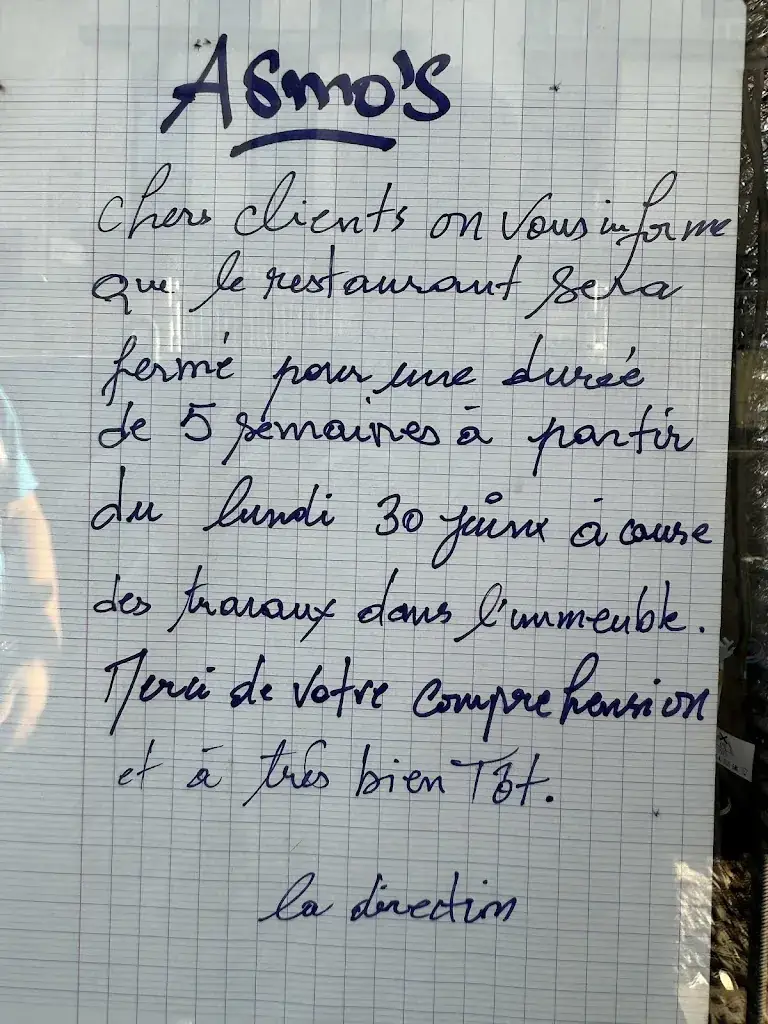 Asmo's
chers clients on vous informe
que le restaurant sera
fermé pour une durée
de 5 semaines à partir
du lundi 30 juin à cause
des travaux dans l'immeuble.
Merci de votre comprehension
et à très bien Tôt.
la direction